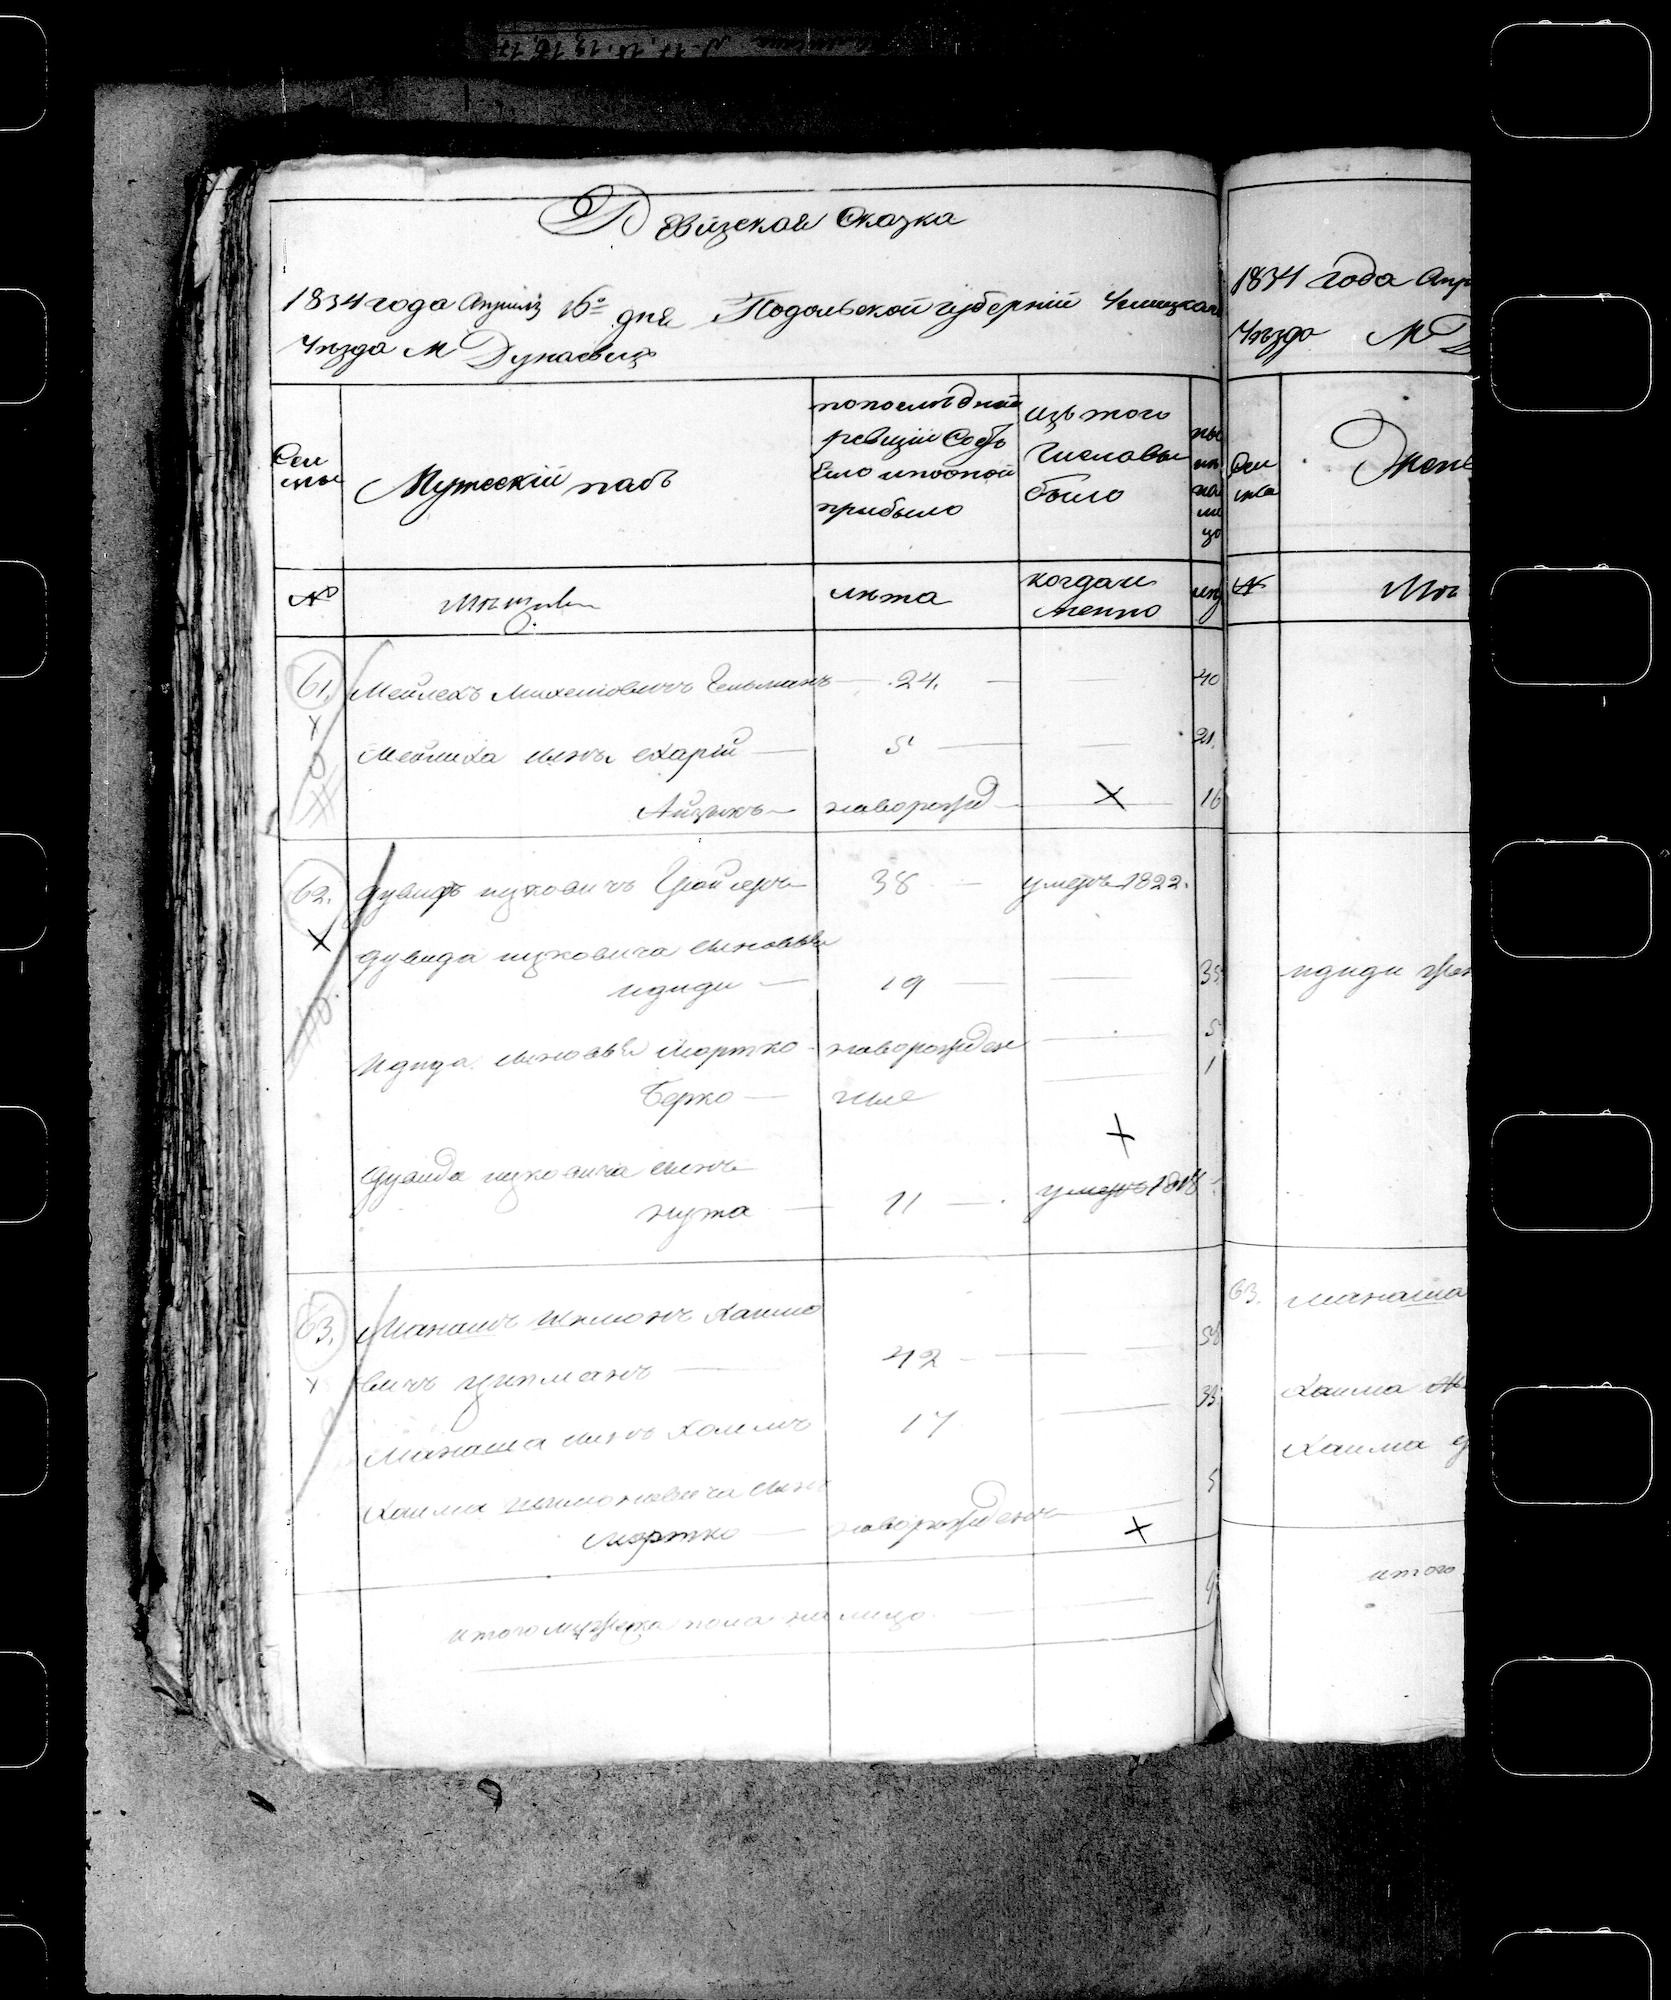 Ревизская Сказка
1834 года Апреля 16го дня Подольской губерніи Ушицкаго
Уезда М Дунаевцъ
Семьи
Мужескій полъ
по последней
ревизіи состо
было
изъ того
числа вы
было
ны
не
на
ли
цо
№
лета
когда и
менно
лет
61.
Мейлехъ Гельманъ 24. 40
Мейлиха сынъ 5 21
Айзикъ новорожд 16
62.
Дувидъ Ицковичъ 38 умеръ 1822.
Дувида Ицковича сыновья
Идиди 19 35
Идида сыновья Мортко новорожден 5
Берко ные 1
Дувида Ицковича сынъ
Нута 11 умеръ 1818
63.
Манашъ Шимонъ Хаимо
вичъ Ципманъ 42 58
Манаша сынъ Хаимъ 17 33
Хаима Шимоновича сынъ
Мортко новорожденъ 5
итого мужеска пола на лицо 9
1834 года Апр
Уезда М Д
Семья
Женс
№
Идиди жен
63. Манаша
Хаима
Хаима
итого